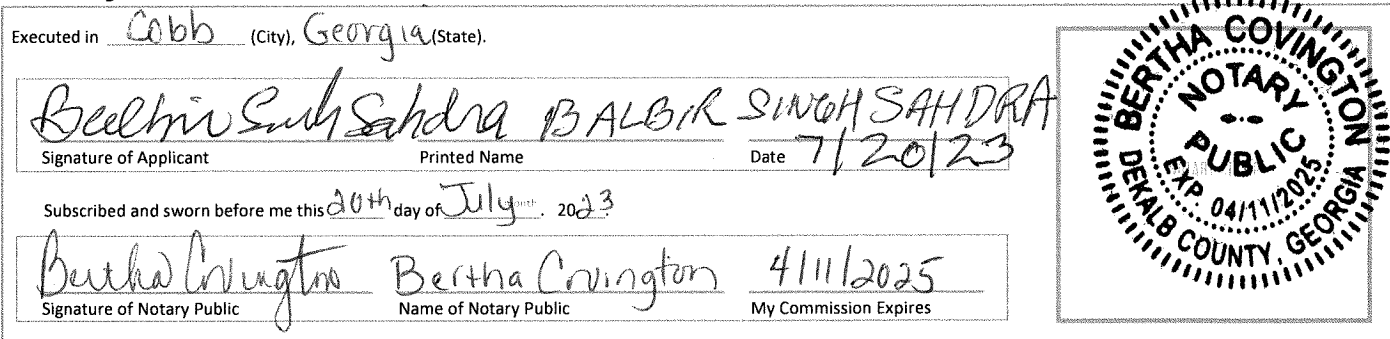 Executed in Cobb (City), Georgia (State).
Balbir Singh Sahdra BALBIR SINGH SAHDRA
Signature of Applicant Printed Name Date 7/20/23
Subscribed and sworn before me this 20th day of July. 2023
Bertha Covington Bertha Covington 4/11/2025
Signature of Notary Public Name of Notary Public My Commission Expires
BERTHA COVINGTON
NOTARY
PUBLIC
EXP. 04/11/2025
DEKALB COUNTY, GEORGIA